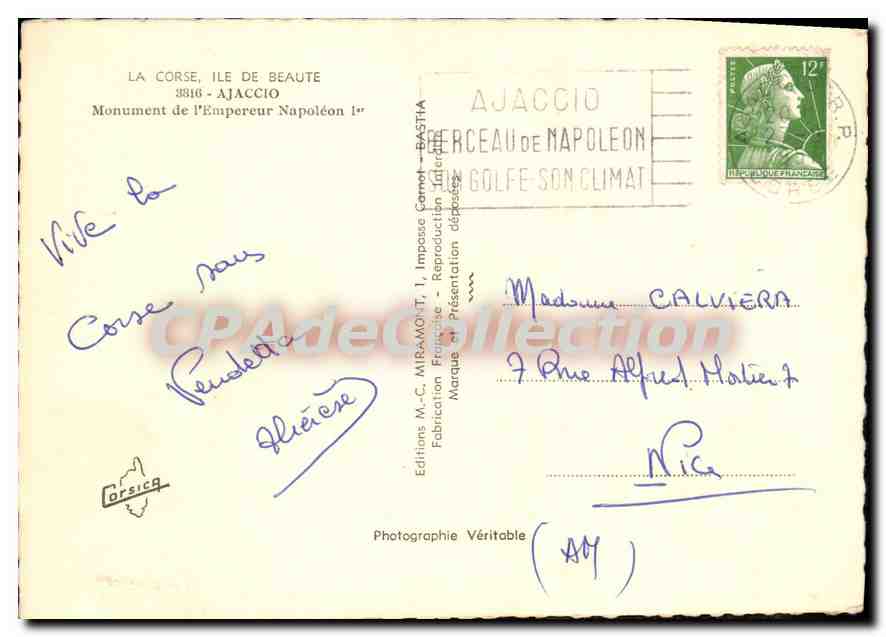 LA CORSE, ILE DE BEAUTE
3816 - AJACCIO
Monument de l'Empereur Napoléon Ier
Vive la
Corse sans
Vendetta
thérèse
Corsica
Photographie Véritable
Editions M.-C. MIRAMONT, 1, Impasse Carnot - BASTIA
Fabrication Française - Reproduction interdite
Marque et Présentation déposées
AJACCIO
BERCEAU DE NAPOLEON
SON GOLFE-SON CLIMAT
POSTES
12F
REPUBLIQUE FRANCAISE
R.P.
Madame CALVIERA
7 Rue Alfred Mortier 7
Nice
(AM)
CPAdeCollection